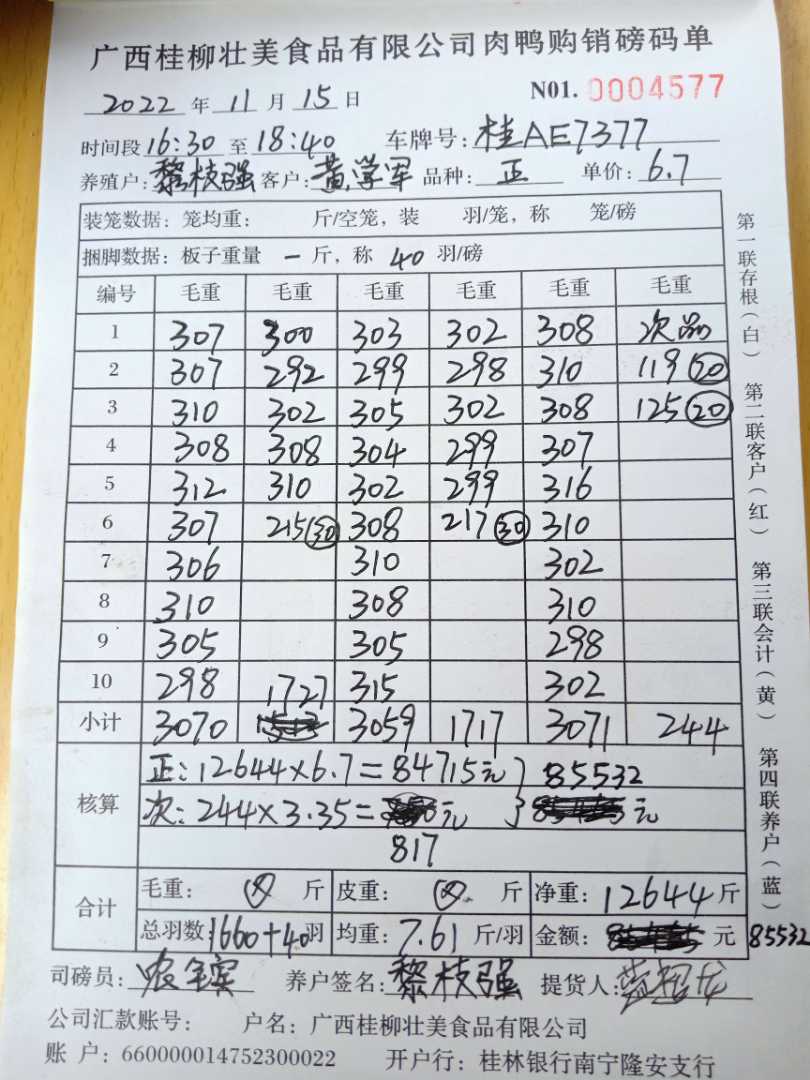 广西桂柳壮美食品有限公司肉鸭购销磅码单
2022 年 11 月 15 日 N01. 0004577
时间段 16:30 至 18:40 车牌号: 桂AE7377
养殖户: 黎枝强 客户: 黄学军 品种: 正 单价: 6.7
装笼数据: 笼均重: 斤/空笼, 装 羽/笼, 称 笼/磅
捆脚数据: 板子重量 一 斤, 称 40 羽/磅
编号 毛重 毛重 毛重 毛重 毛重 毛重
1 307 300 303 302 308 次品
2 307 292 299 298 310 119 20
3 310 302 305 302 308 125 20
4 308 308 304 299 307
5 312 310 302 299 316
6 307 215 30 308 217 30 310
7 306 310 302
8 310 308 310
9 305 305 298
10 298 1727 315 302
小计 3070 3059 1717 3071 244
核算 正: 12644×6.7=84715元 } 85532
次: 244×3.35= 元 } 元
817
合计 毛重: 斤 皮重: 斤 净重: 12644 斤
总羽数 1660+40 羽 均重: 7.61 斤/羽 金额: 元 85532
司磅员: 养户签名: 黎枝强 提货人:
公司汇款账号: 户名: 广西桂柳壮美食品有限公司
账 户: 660000014752300022 开户行: 桂林银行南宁隆安支行
第一联存根(白) 第二联客户(红) 第三联会计(黄) 第四联养户(蓝)